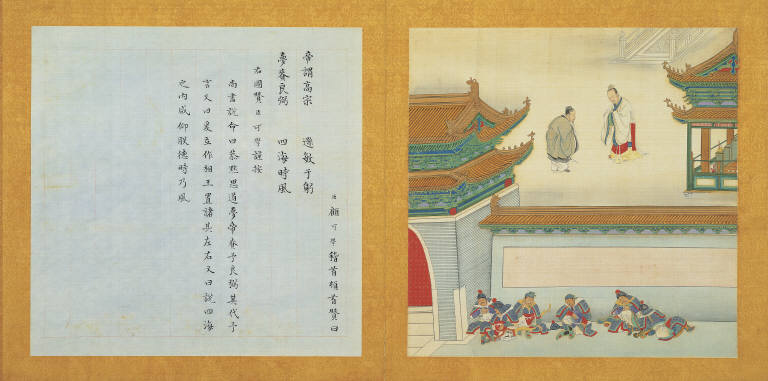 臣顧可學稽首頓首贊曰
帝謂高宗　遜敏于躬
夢賚良弼　四海時風
右圖贊臣可學謹按
尚書說命曰恭默思道夢帝賚予良弼其代予
言又曰爰立作相王置諸其左右又曰說四海
之內咸仰朕德時乃風